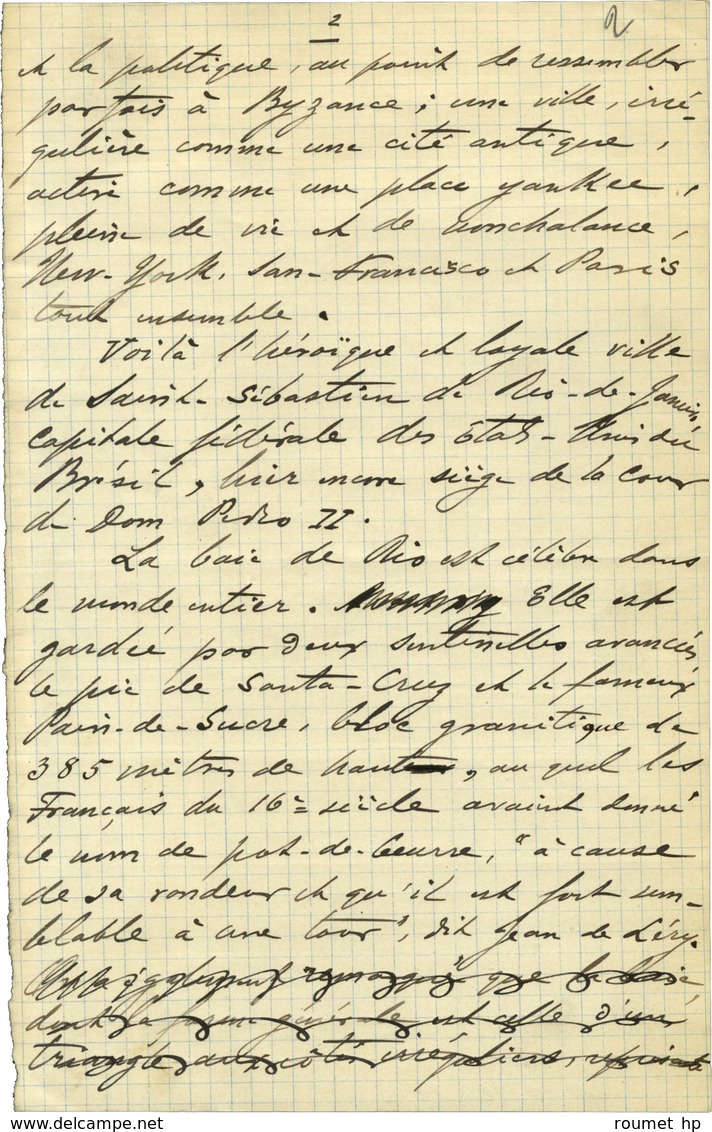 2
2
et la politique, au point de ressembler
parfois à Byzance ; une ville, irré-
gulière comme une cité antique,
active comme une place yankee,
pleine de vie et de nonchalance,
New-York, San-Francisco et Paris
tout ensemble.
Voilà l'héroïque et loyale ville
de Saint-Sébastien de Rio-de-Janeiro,
capitale fédérale des Etats-Unis du
Brésil, hier encore siège de la Cour
de Dom Pedro II.
La baie de Rio est célèbre dans
le monde entier. Elle est
gardée par deux sentinelles avancées,
le pic de Santa-Cruz et le fameux
Pain-de-Sucre, bloc granitique de
385 mètres de haut, au quel les
Français du 16e siècle avaient donné
le nom de pot-de-beurre, "à cause
de sa rondeur et qu'il est fort sem-
blable à une tour", dit Jean de Léry.
que la baie,
dont la forme générale est celle d'un
triangle aux côtés irréguliers,
roumet hp